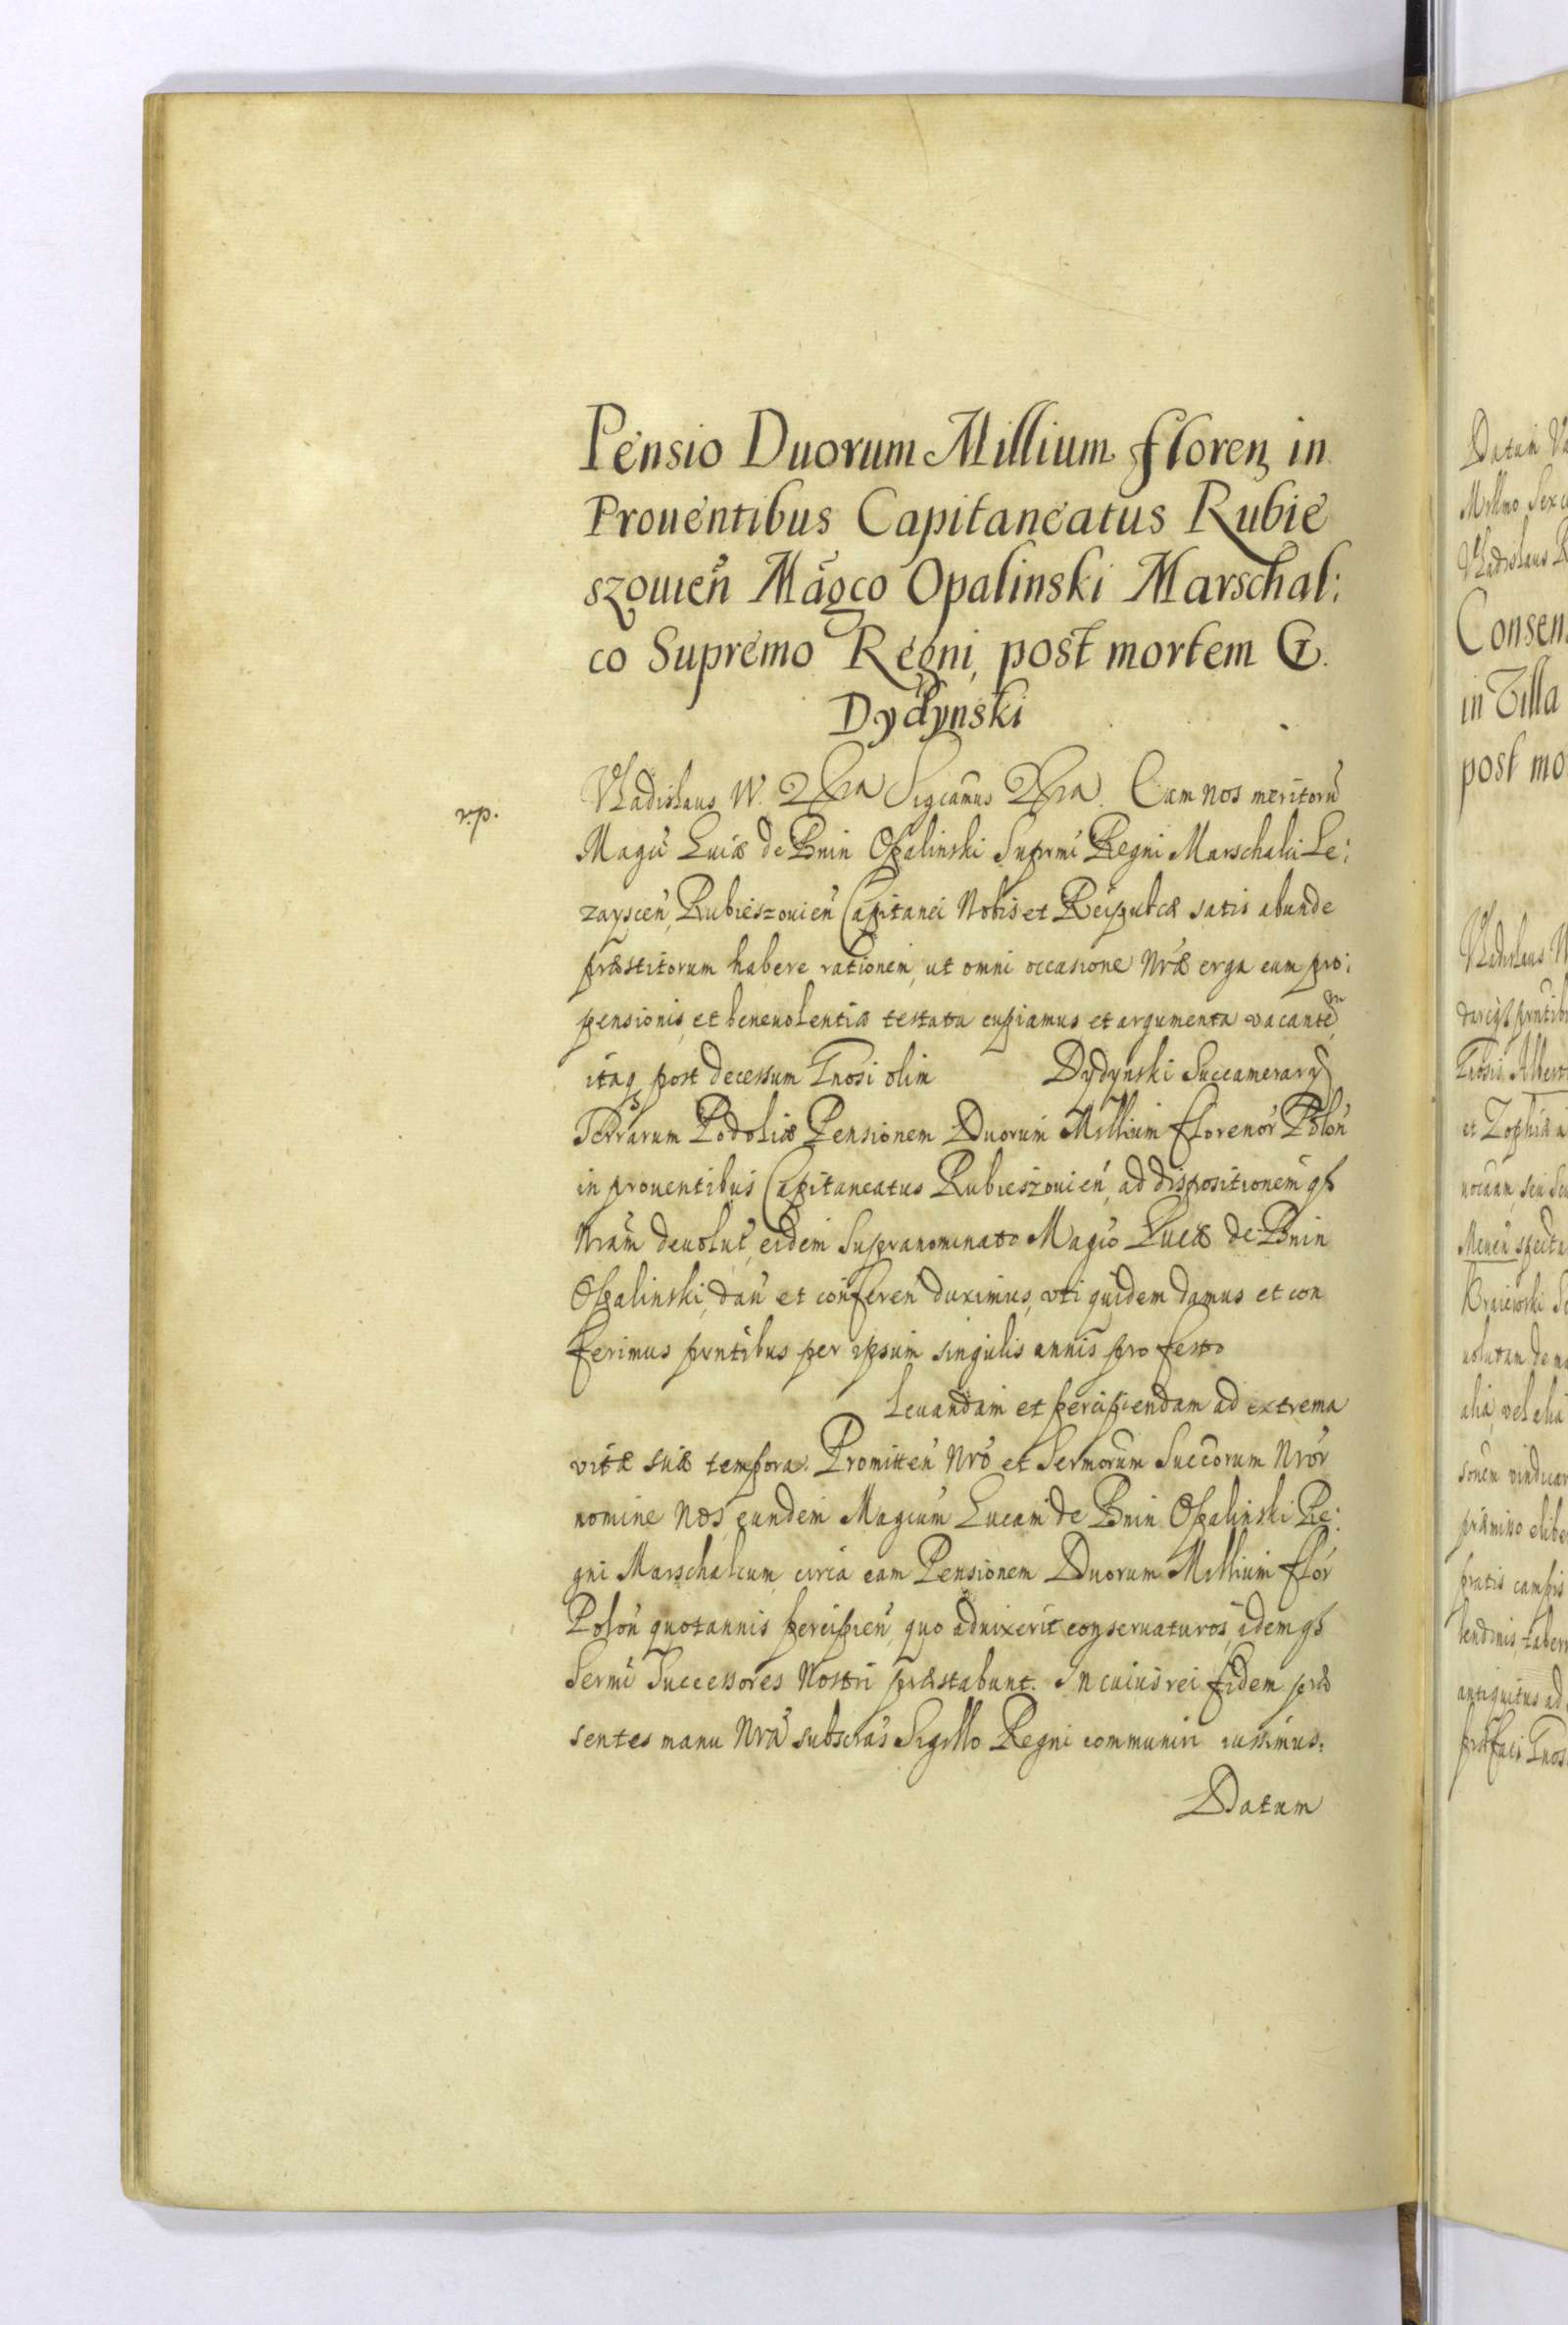 Pensio Duorum Millium floren in
Prouentibus Capitaneatus Rubie
szouien Magco Opalinski Marschal:
co Supremo Regni, post mortem G.
Dydynski
r.p.
Vladislaus IV. Sigcamus Cum nos meritoru
Magci Lucæ de Bnin Opalinski Supremi Regni Marschalci Le:
zayscen, Rubieszouien Capitanei Nobis et Reipubcæ satis abunde
præstitorum habere rationem, ut omni occasione Nræ erga eum pro:
pensionis, et beneuolentiæ testata cupiamus et argumenta vacante
m
itaq post decessum Gnosi olim Dydynski Succamerarij
Terrarum Podoliæ Pensionem Duorum Millium florenor Polon
in prouentibus Capitaneatus Rubieszouien, ad dispositionem
Nram deuolut, eidem Supranominato Magco Lucæ de Bnin
Opalinski, dan et conferen duximus, vti quidem damus et con
ferimus pntibus per ipsum singulis annis pro festo
Leuandam et percipiendam ad extrema
vitæ suæ tempora. Promitten Nro et Sermorum Succorum Nror
nomine Nos, eundem Magcum Lucam de Bnin Opalinski Re:
gni Marschalcum, circa eam Pensionem Duorum Millium flor
Polon quotannis percipien, quo aduixerit conseruaturos, idemq
Sermi Successores Nostri præstabunt. In cuius rei fidem præ
sentes manu Nra subscras Sigillo Regni communiri iussimus.
Datum
Datum
Consen
in Villa
post mo